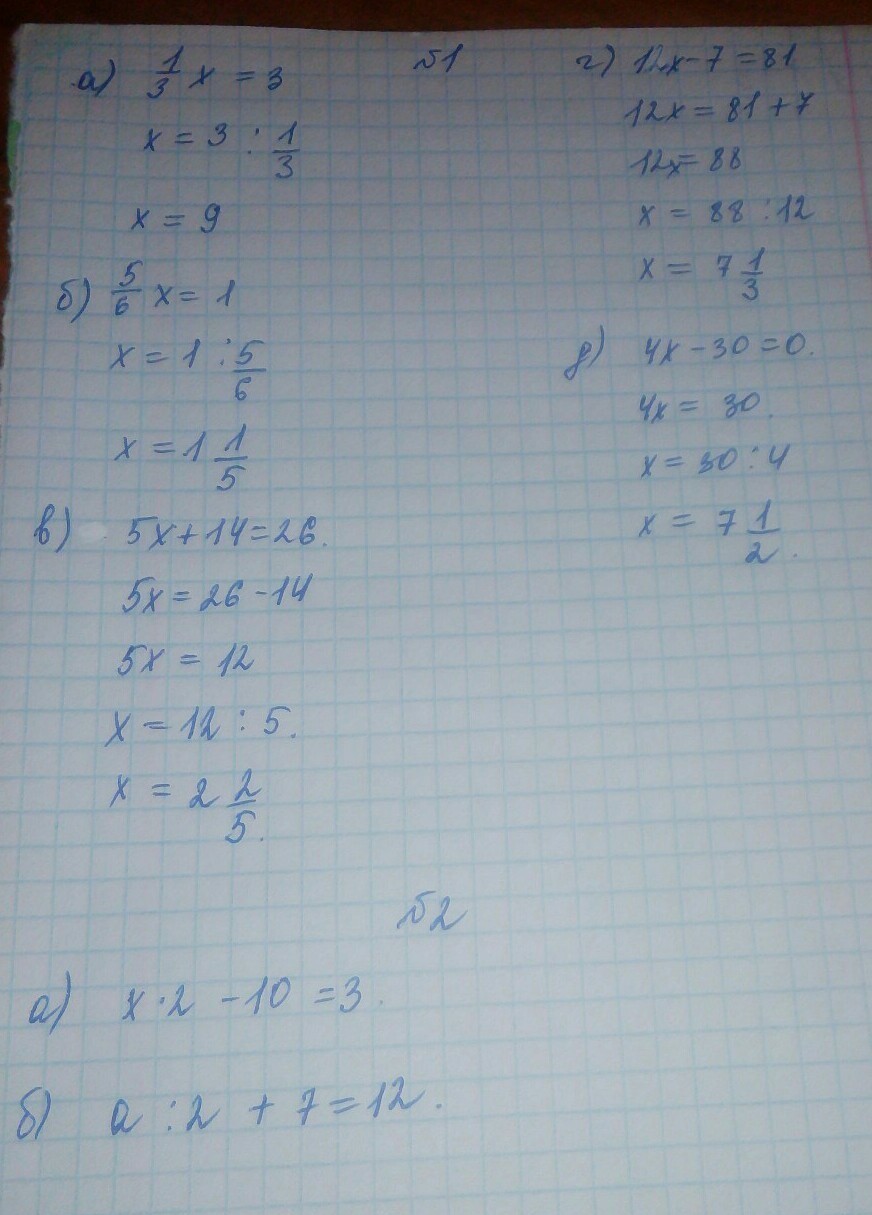 №1
а) 1/3 x = 3
x = 3 : 1/3
x = 9
б) 5/6 x = 1
x = 1 : 5/6
x = 1 1/5
в) 5x+14=26.
5x=26-14
5x = 12
x = 12 : 5.
x = 2 2/5.
г) 12x-7=81
12x = 81+7
12x=88
x = 88:12
x = 7 1/3
д) 4x-30=0.
4x = 30.
x = 30:4
x = 7 1/2.
№2
а) x·2 -10 =3.
б) a :2 + 7=12.